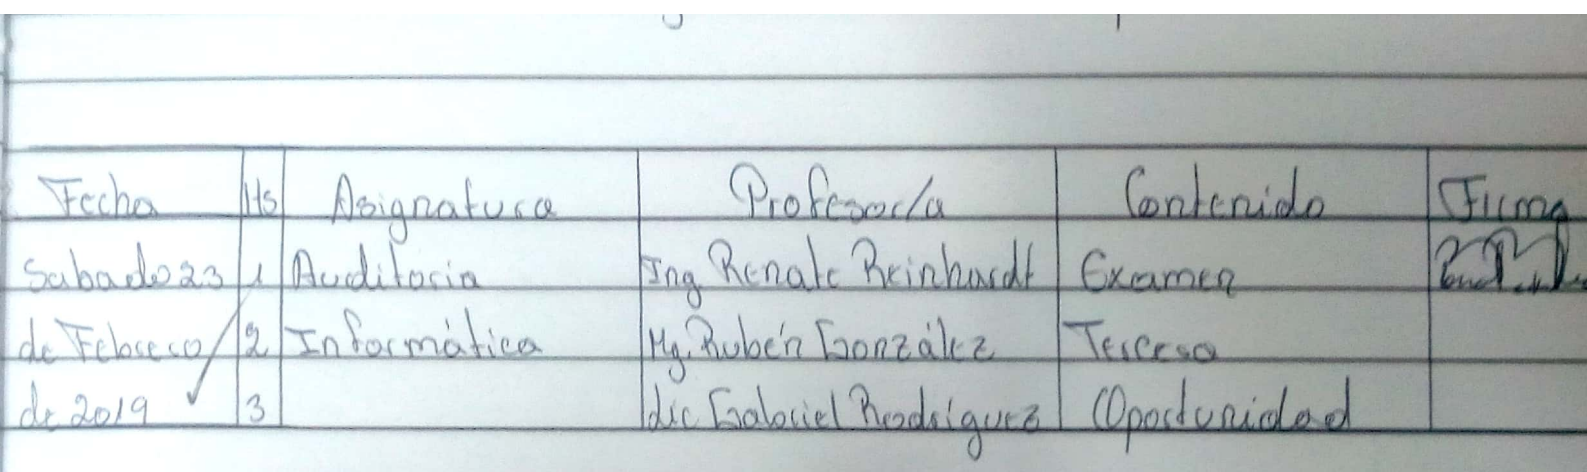 Fecha Hs Asignatura Profesor/a Contenido Firma
Sabado 23 1 Auditoria Ing Renate Reinhardt Examen
de Febrero 2 Informática Mg. Rubén González Tercera
de 2019 3 Lic Gabriel Rodríguez Oportunidad